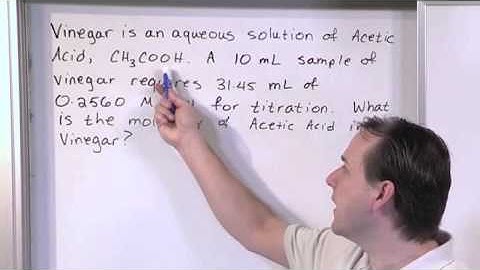 Vinegar is an aqueous solution of Acetic
Acid, CH₃COOH. A 10 mL sample of
vinegar requires 31.45 mL of
0.2560 M for titration. What
is the of Acetic Acid in
Vinegar?